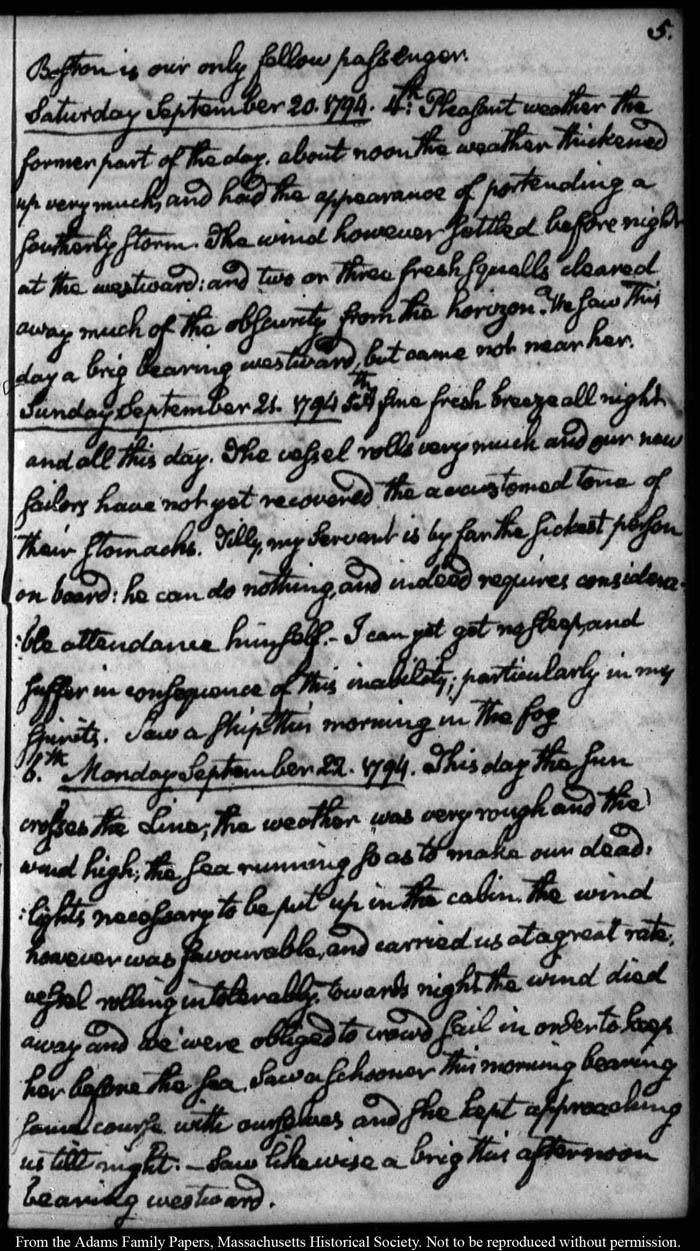 5.
Boston is our only fellow passenger.
Saturday September 20. 1794. 4th: Pleasant weather the
former part of the day. about noon the weather thickened
up very much, and had the appearance of portending a
southerly storm. The wind however settled before night
at the westward: and two or three fresh squalls cleared
away much of the obscurity from the horizon. We saw this
day a brig bearing westward, but came not near her.
Sunday September 21. 1794 5th A fine fresh breeze all night
and all this day. The vessel rolls very much and our new
sailors have not yet recovered the accustomed tone of
their stomachs. Tilly, my Servant is by far the sickest person
on board: he can do nothing, and indeed requires considera-
:ble attendance himself.- I can yet get no sleep, and
suffer in consequence of this inability; particularly in my
spirits. Saw a ship this morning in the fog
6.th Monday September 22. 1794. This day the Sun
crosses the Line; the weather was very rough and the
wind high; the sea running so as to make our dead:
:lights necessary to be put up in the cabin. the wind
however was favourable, and carried us at a great rate.
vessel rolling intolerably. towards night the wind died
away and we were obliged to crowd sail in order to keep
her before the sea. Saw a schooner this morning bearing
same course with ourselves and she kept approaching
us till night.- Saw likewise a brig this afternoon
bearing westward.
From the Adams Family Papers, Massachusetts Historical Society. Not to be reproduced without permission.